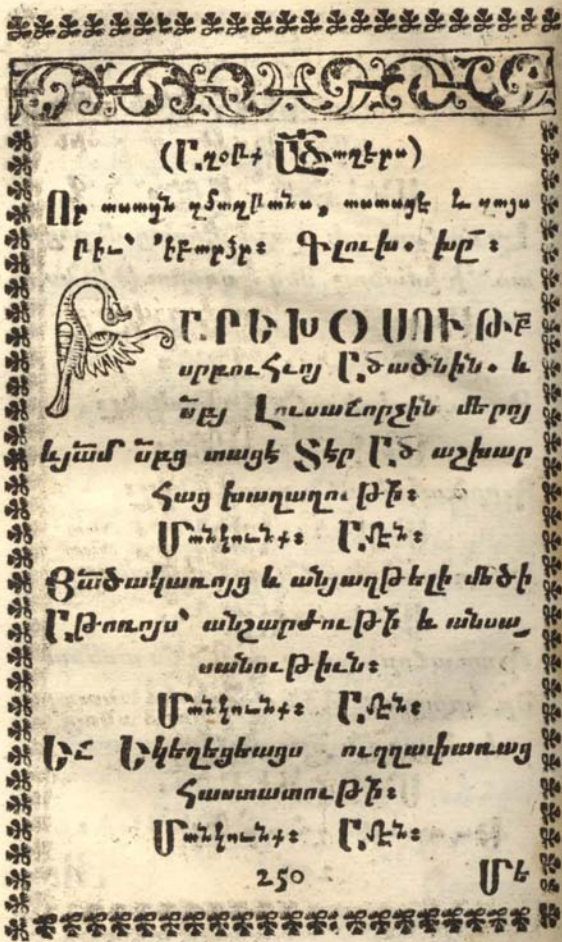 (Աղօթք Մճաղէրս)
Որ ասասցն զմաղթանս, ասասցէ և զայս
թիւ՝ ՚ի բարձր։ Գլուխ. խը։
ԲԱՐԵԽՕՍՈՒԹԲ
սրբուհւոյ Ածածնին. և
սբյ Լուսաւորչին մերոյ
ևյամ սբց տացէ Տէր Ած աշխար
հաց խաղաղութի։
Մանկունք։ Ամէն։
Ցածակառոյց և անյաղթելի մեծի
Աթոռոյս՝ անշարժութի և անսա_
սանութիւն։
Մանկունք։ Ամէն։
Եւ Եկեղեցեացս ուղղափառաց
հաստատութի։
Մանկունք։ Ամէն։
250
Մե